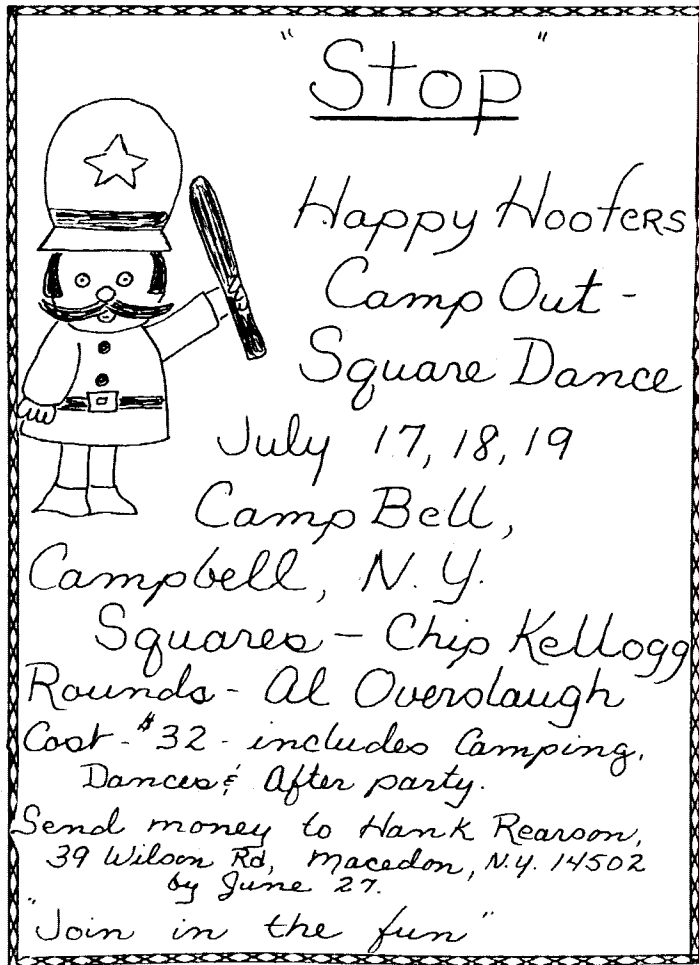 "Stop"
Happy Hoofers
Camp Out -
Square Dance
July 17, 18, 19
Camp Bell,
Campbell, N.Y.
Squares - Chip Kellogg
Rounds - Al Overslaugh
Cost - $32 - includes Camping,
Dances & After party.
Send money to Hank Rearson,
39 Wilson Rd, Macedon, N.Y. 14502
by June 27.
"Join in the fun"